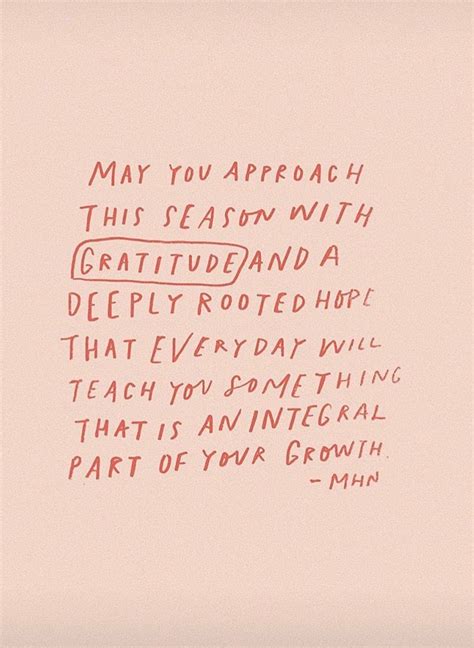 MAY YOU APPROACH
THIS SEASON WITH
GRATITUDE AND A
DEEPLY ROOTED HOPE
THAT EVERYDAY WILL
TEACH YOU SOMETHING
THAT IS AN INTEGRAL
PART OF YOUR GROWTH.
- MHN